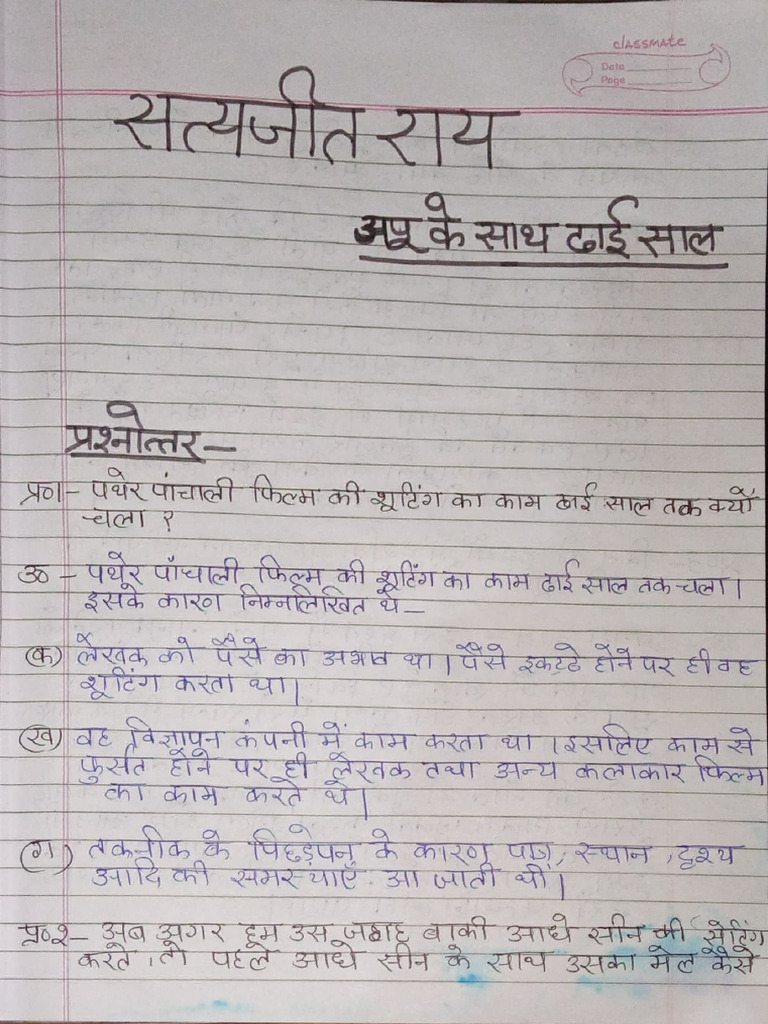 classmate
Date
Page
सत्यजीत राय
अपू के साथ ढाई साल
प्रश्नोत्तर -
प्र०1- पथेर पांचाली फिल्म की शूटिंग का काम ढाई साल तक क्यों
चला ?
उ० - पथेर पाँचाली फिल्म की शूटिंग का काम ढाई साल तक चला।
इसके कारण निम्नलिखित थे -
(क) लेखक को पैसे का अभाव था। पैसे इकट्ठे होने पर ही वह
शूटिंग करता था।
(ख) वह विज्ञापन कंपनी में काम करता था। इसलिए काम से
फुर्सत होने पर ही लेखक तथा अन्य कलाकार फिल्म
का काम करते थे।
(ग) तकनीक के पिछड़ेपन के कारण पात्र, स्थान, दृश्य
आदि की समस्याएँ आ जाती थीं।
प्र०2- अब अगर हम उस जगह बाकी आधे सीन की सेटिंग
करते, तो पहले आधे सीन के साथ उसका मेल कैसे